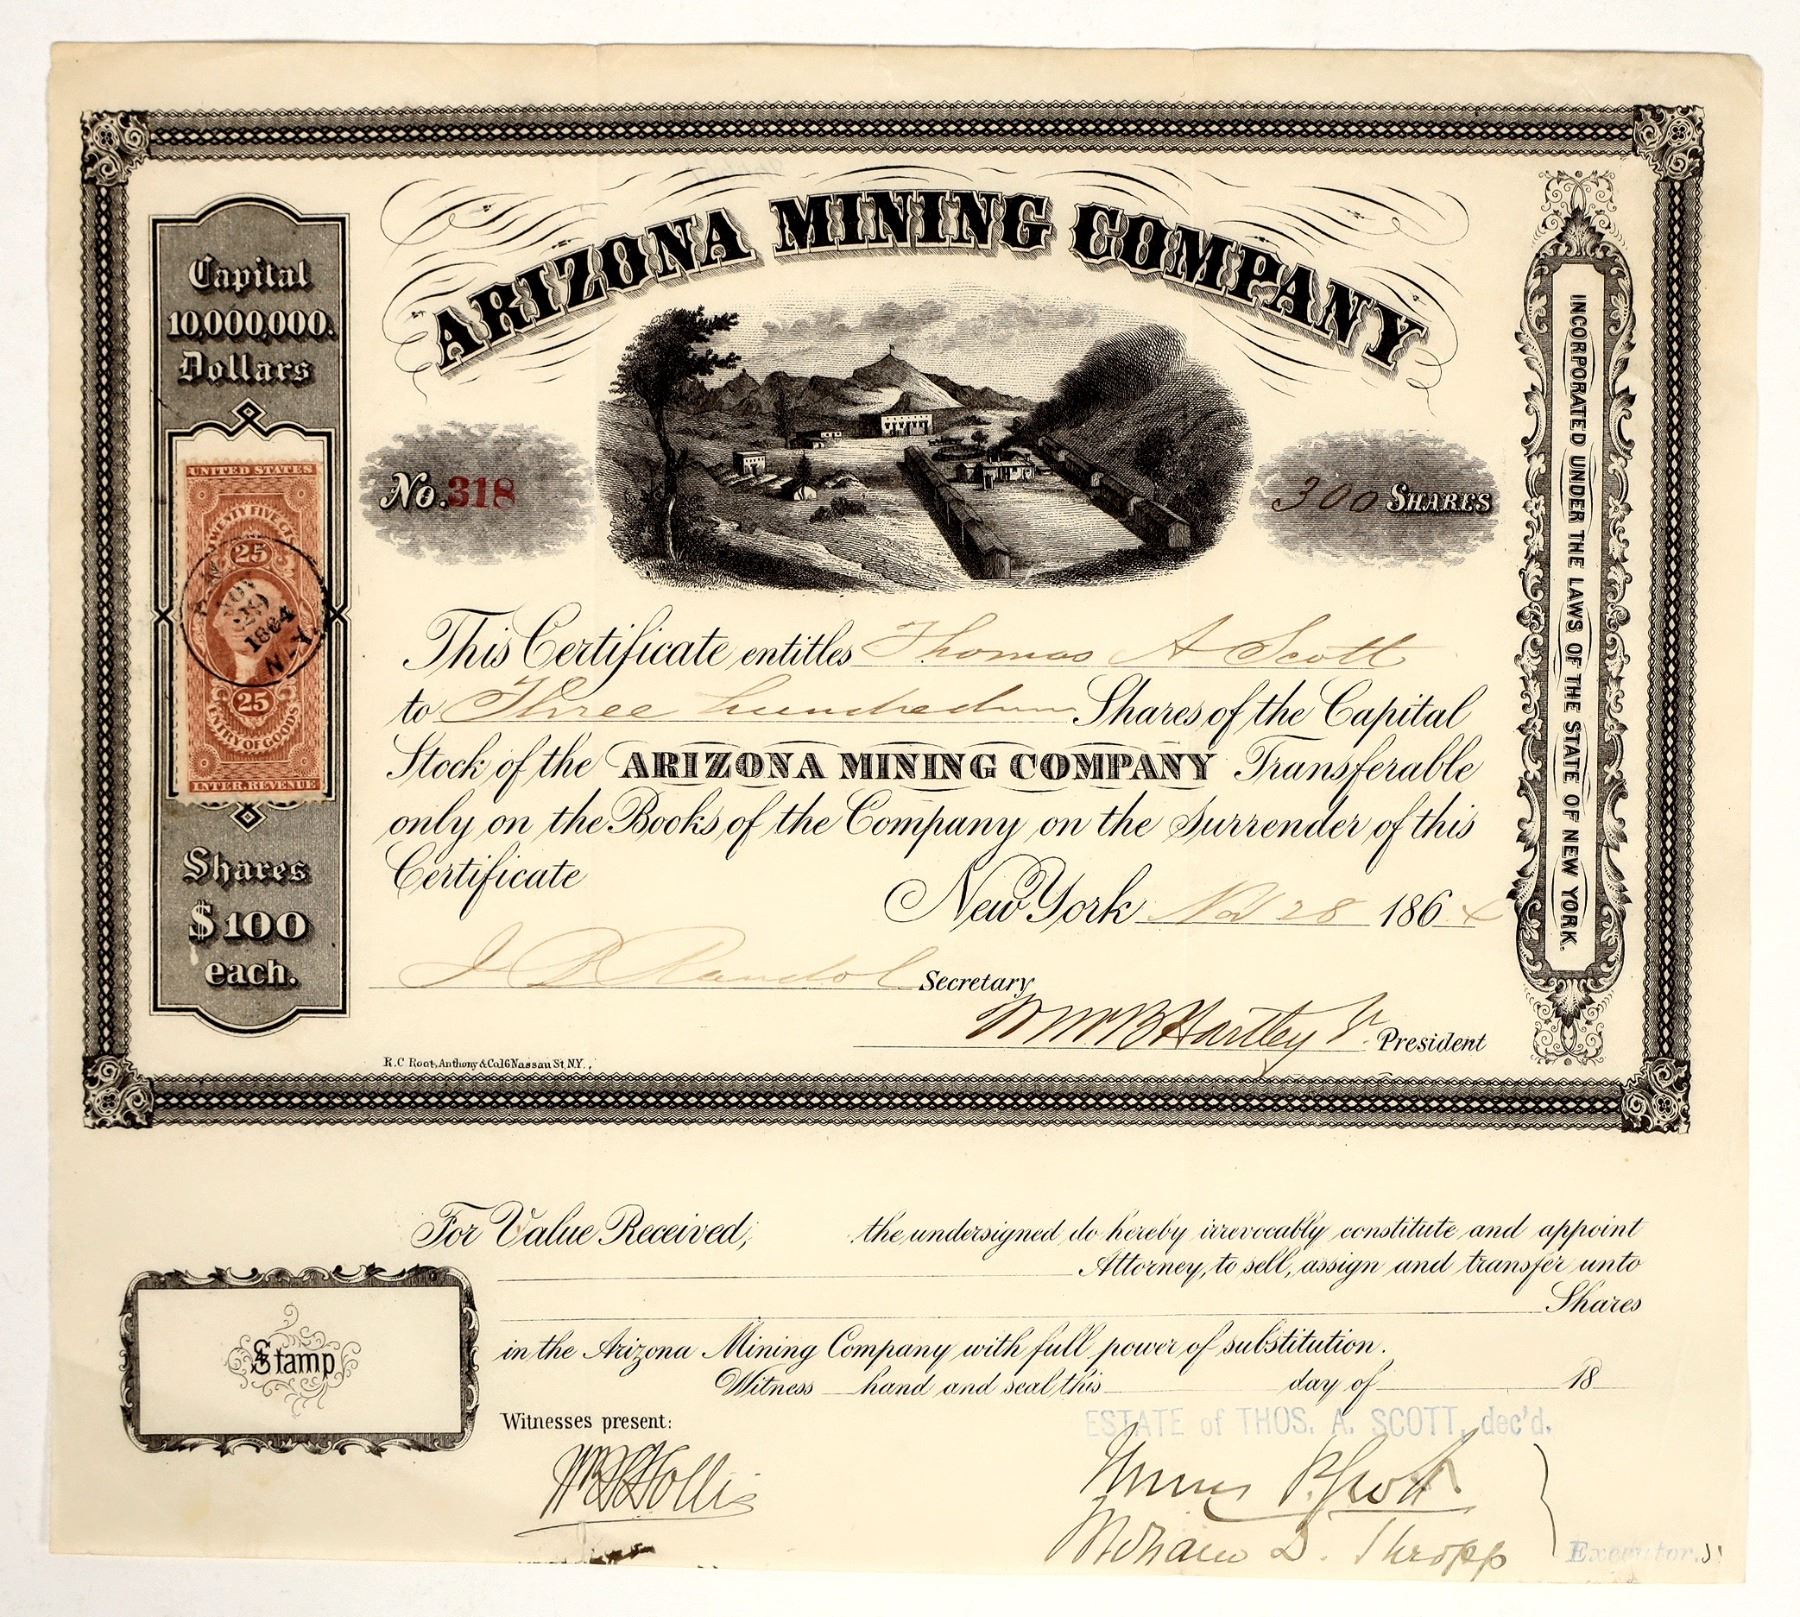 ARIZONA MINING COMPANY
Capital
10,000,000.
Dollars
UNITED STATES
TWENTY FIVE CTS
25
NOV
29
1864
N-Y.
25
ENTRY OF GOODS
INTER. REVENUE
Shares
$100
each.
No. 318
300 SHARES
INCORPORATED UNDER THE LAWS OF THE STATE OF NEW YORK.
This Certificate entitles Thomas A Scott
to Three hundred Shares of the Capital
Stock of the ARIZONA MINING COMPANY Transferable
only on the Books of the Company on the Surrender of this
Certificate
New York Nov 28 1864
J B Randol Secretary
Wm B Hartley Jr. President
R.C Root, Anthony & Co 16 Nassau St N.Y.
For Value Received, the undersigned do hereby irrevocably constitute and appoint
Attorney, to sell, assign and transfer unto
Shares
in the Arizona Mining Company with full power of substitution.
Witness hand and seal this day of 18
Stamp
Witnesses present:
ESTATE of THOS. A. SCOTT, dec'd.
Hollis
P. Scott
D. Thropp
Executors